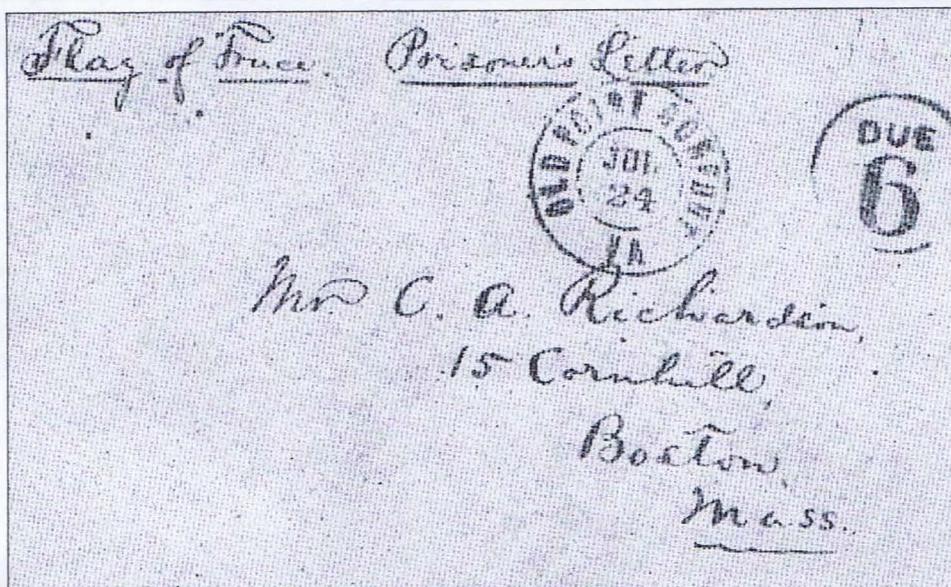 Flag of Truce. Prisoner's Letter
OLD POINT COMFORT
JUL
24
VA
DUE
6
Mr. C. A. Richardson,
15 Cornhill,
Boston,
Mass.